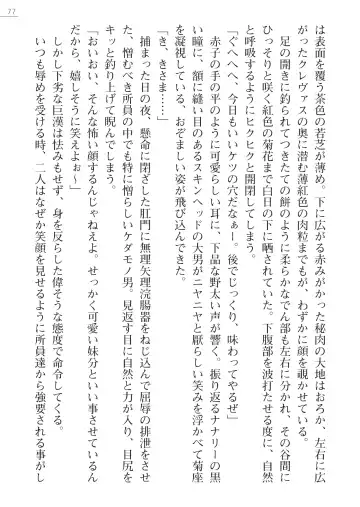 77
は表面を覆う茶色の若芝が薄め。下に広がる赤みがかった秘肉の大地はおろか、左右に広
がったクレヴァスの奥に潜む薄紅色の肉粒までもが、わずかに顔を覗かせている。
足の開きに釣られてつきたての餅のように柔らかなでん部も左右に分かれ、その谷間に
ひっそりと咲く紅色の菊花まで白日の下に晒されていた。下腹部を波打たせる度に、自然
と呼吸するようにヒクヒクと開閉してしまう。
「ぐへへへ、今日もいいケツの穴だなぁー。後でじっくり、味わってやるぜ」
赤子の手の平のように可愛らしい耳に、下品な野太い声が響く。振り返るナナリーの黒
い瞳に、額に縫い目のあるスキンヘッドの大男がニヤニヤと厭らしい笑みを浮かべて菊座
を凝視している、おぞましい姿が飛び込んできた。
「き、きさま……」
捕まった日の夜、懸命に閉ざした肛門に無理矢理浣腸器をねじ込んで屈辱の排泄をさせ
た、憎むべき所員の中でも特に憎らしいケダモノ男。見返す目に自然と力が入り、目尻を
キッと釣り上げて呪んでしまう。
「おいおい、そんな怖い顔するんじゃねえよ。せっかく可愛い妹分といい事させているん
だから、嬉しそうに笑えよぉ〜」
しかし下劣な巨漢は怯みもせず、身を反らした偉そうな態度で命令してくる。
いつも辱めを受ける時、二人はなぜか笑顔を見せるように所員達から強要される事がし